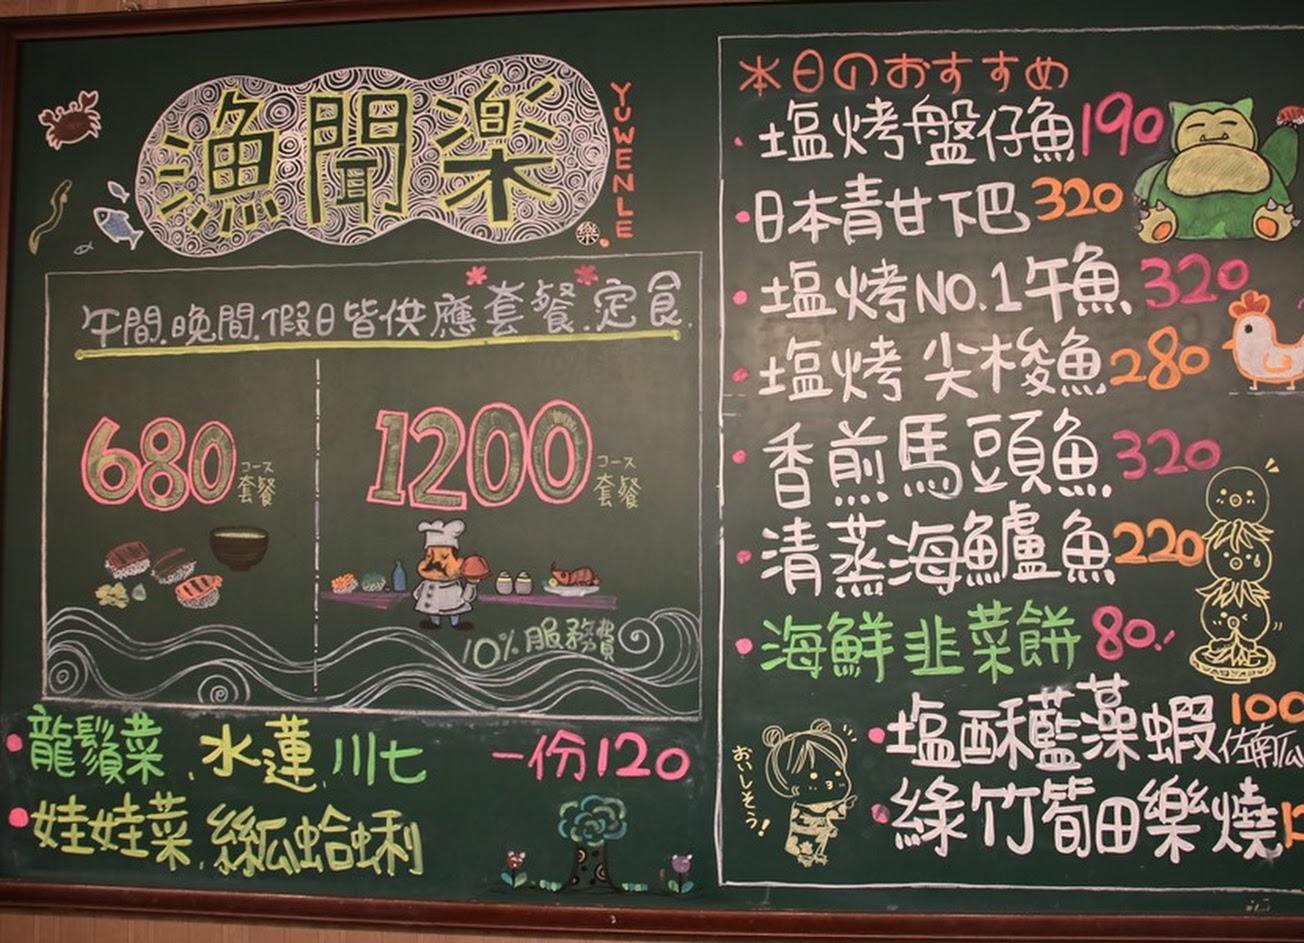 漁聞楽
YUWENLE
樂
午間.晚間.假日皆供應套餐.定食.
680 コース 套餐
1200 コース 套餐
10%服務費
龍鬚菜.水蓮.川七 一份120
娃娃菜.絲瓜蛤蜊
本日のおすすめ
塩烤盤仔魚190
日本青甘下巴320
塩烤NO.1午魚320
塩烤尖梭魚280
香煎馬頭魚320
清蒸海鱸魚220
海鮮韭菜餅80.
塩酥藍藻蝦100
佐南瓜
綠竹筍田樂燒
おいしそう!